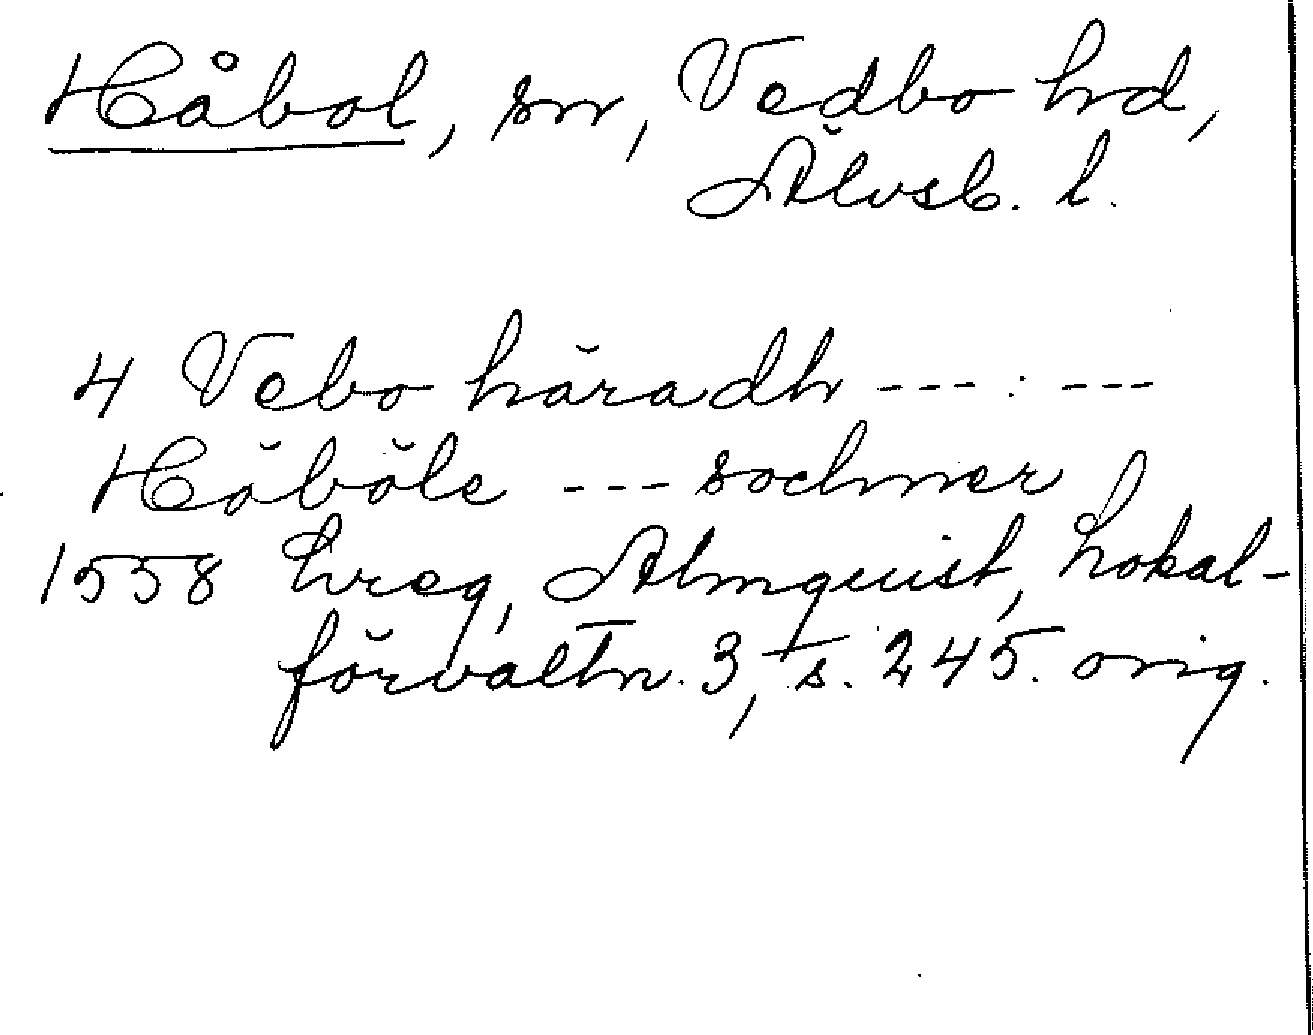 Håbol, sn, Vedbo hd,
Älvsb. l.
4 Vebo häradh --- : ---
Höböle --- sochner
1558 Lvreg, Almquist, Lokal-
förvaltn. 3, s. 245. orig.